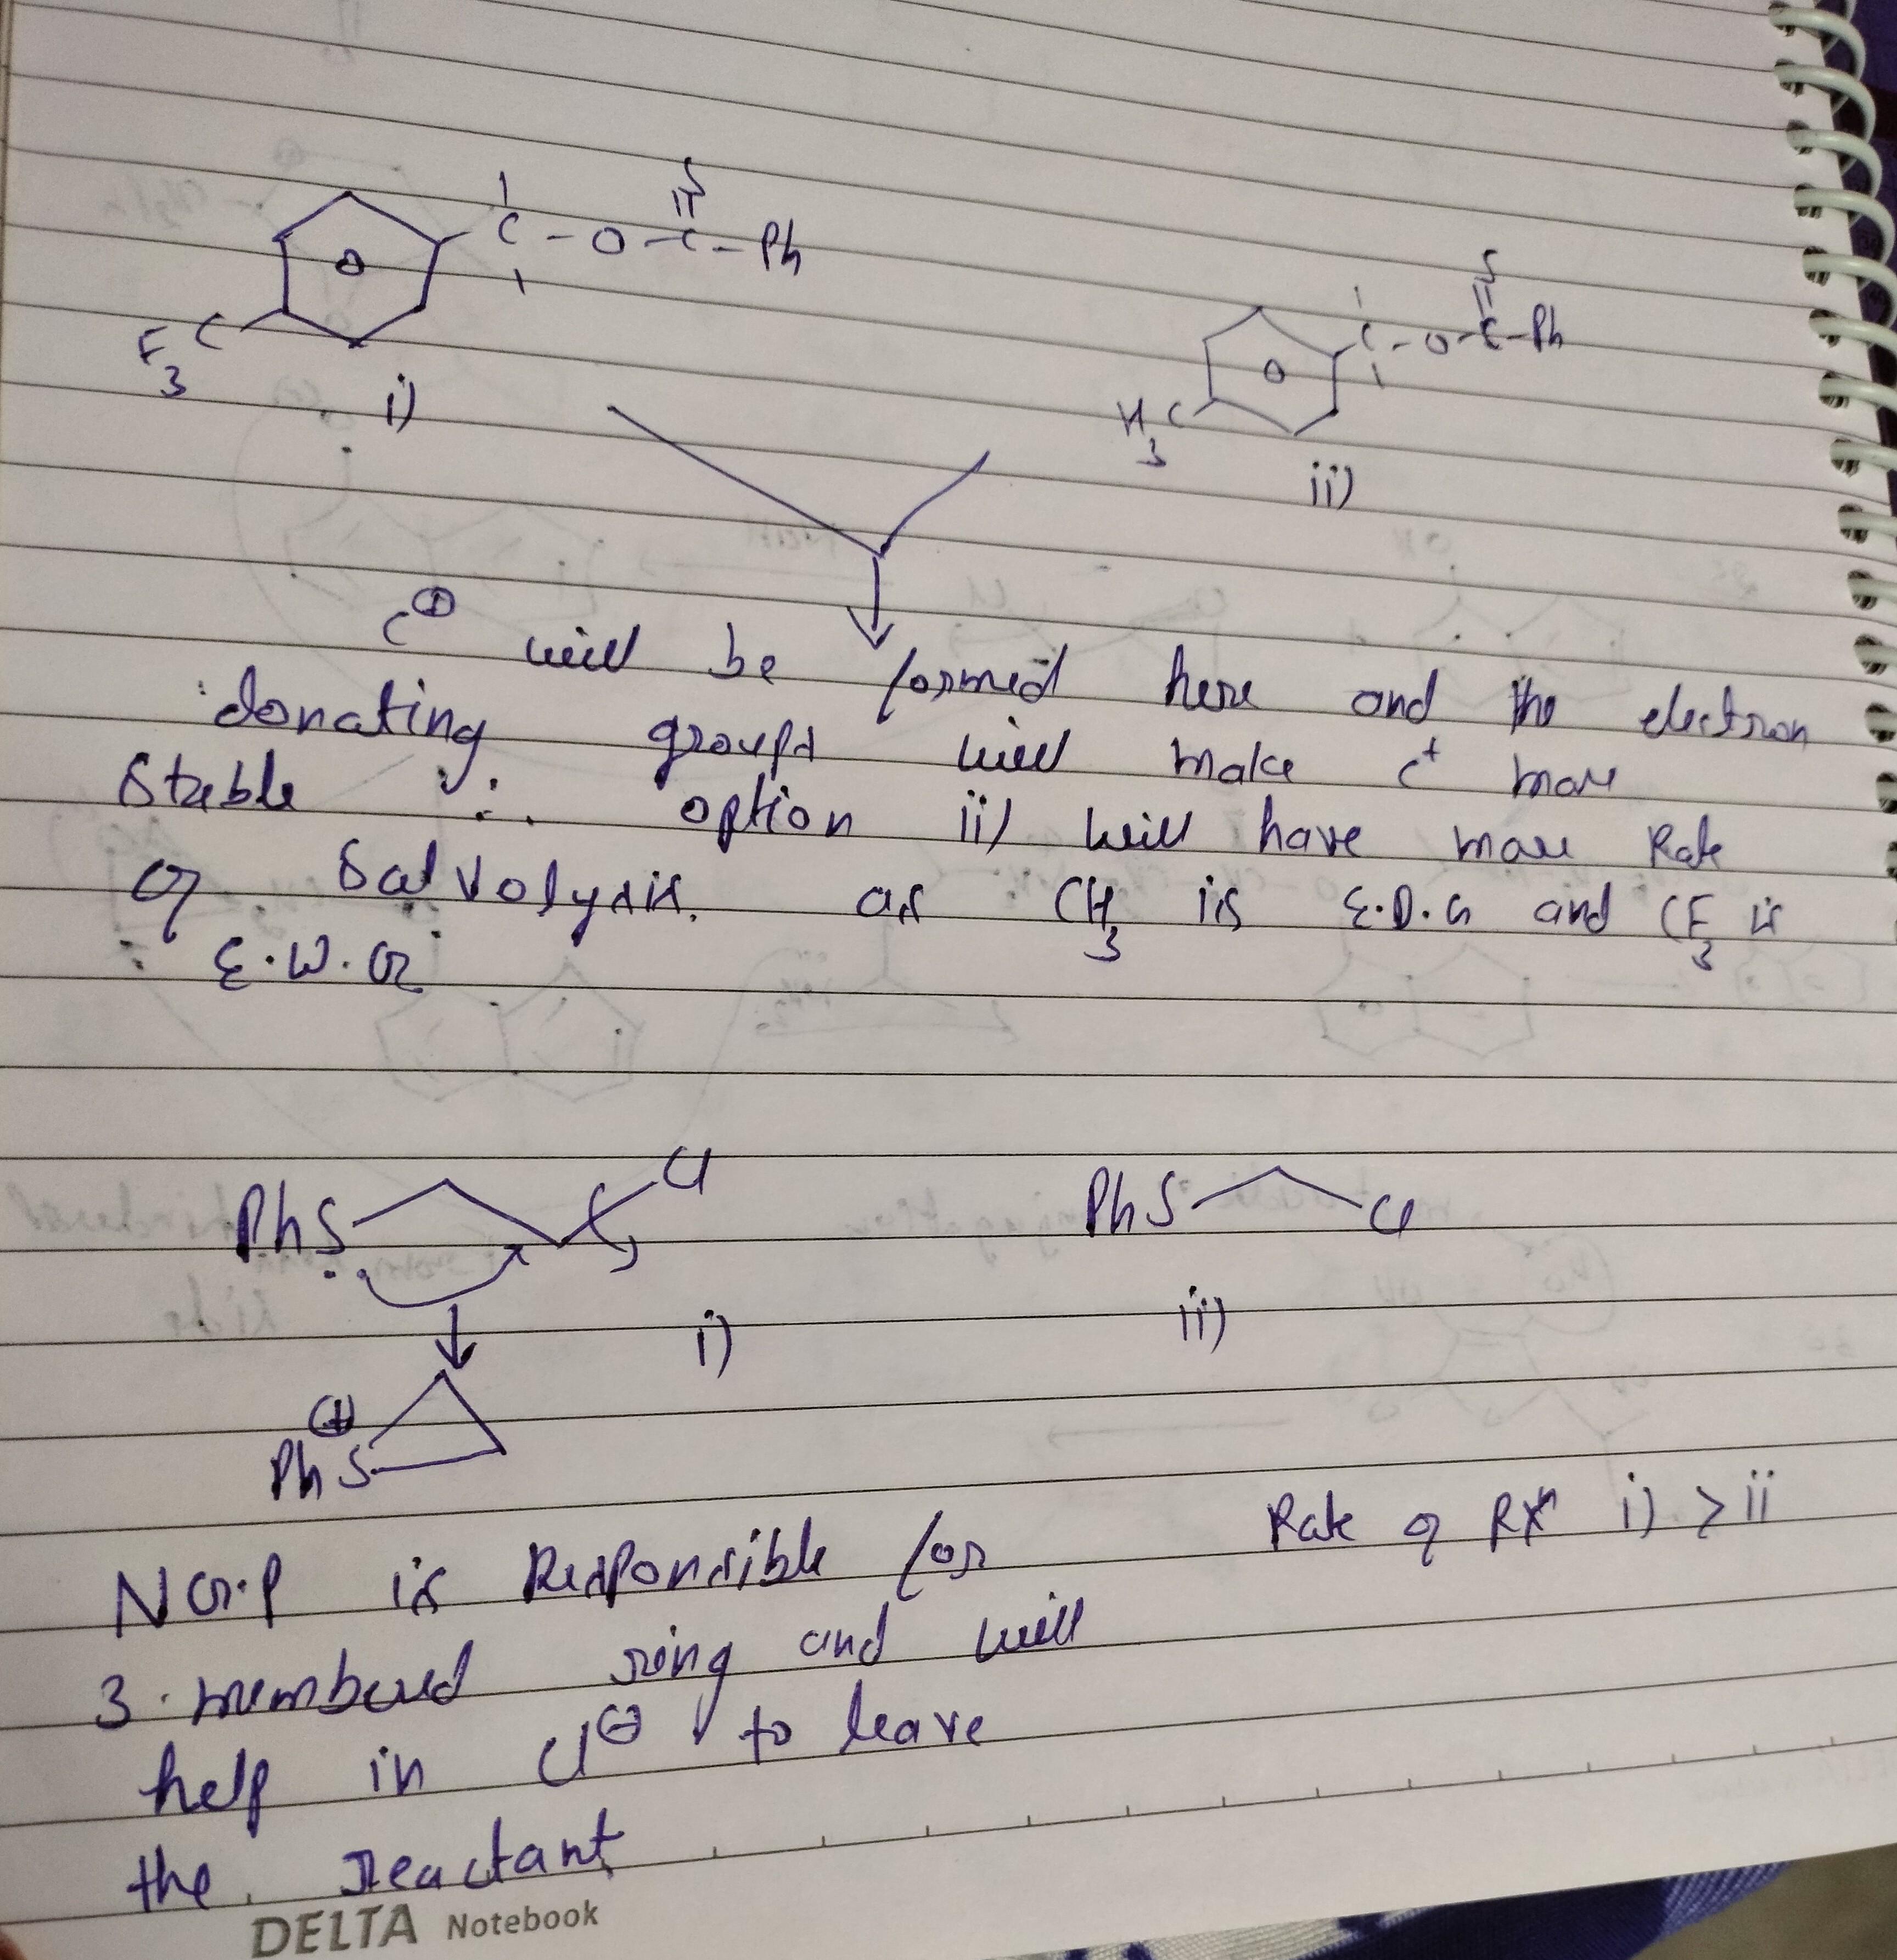 S
C - O - C - Ph
F3C
i)
S
C - O - C - Ph
H3C
ii)
C⊕ will be formed here and the electron
donating groups will make C+ more
stable ∴ option ii) will have more Rate
of Salvolysis. as CH3 is E.D.G and CF3 is
E.W.G
PhS Cl
PhS Cl
i)
ii)
⊕
PhS
Rate of Rxn i) > ii
NGP is Responsible for
3 membered ring and will
help in Cl⊖ to leave
the reactant
DELTA Notebook